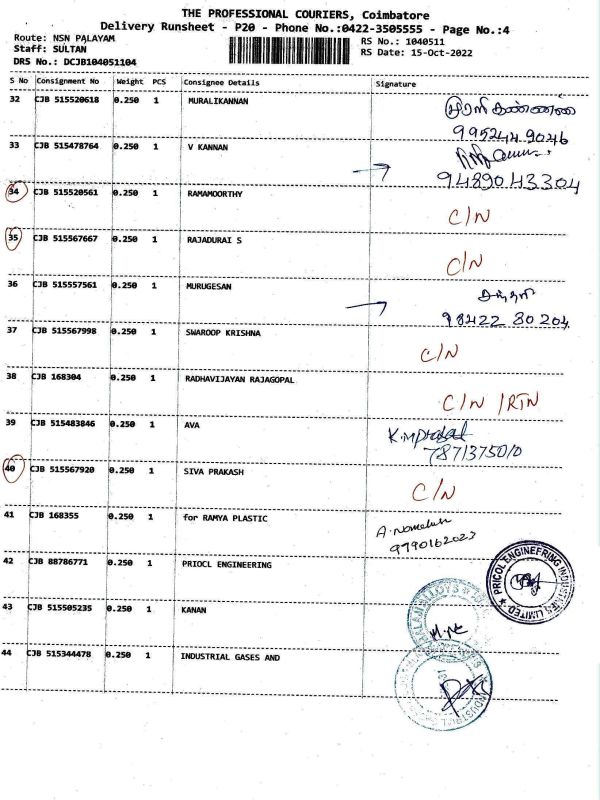 THE PROFESSIONAL COURIERS, Coimbatore
Delivery Runsheet - P20 - Phone No.:0422-3505555 - Page No.:4
Route: NSN PALAYAM
RS No.: 1040511
Staff: SULTAN
RS Date: 15-Oct-2022
DRS No.: DCJB104051104
S No Consignment No Weight PCS Consignee Details Signature
32 CJB 515520618 0.250 1 MURALIKANNAN முரளி கண்ணன்
995244 9046
33 CJB 515478764 0.250 1 V KANNAN
9489043304
34 CJB 515520561 0.250 1 RAMAMOORTHY C/N
35 CJB 515567667 0.250 1 RAJADURAI S C/N
36 CJB 515557561 0.250 1 MURUGESAN
98422 30204
37 CJB 515567998 0.250 1 SWAROOP KRISHNA C/N
38 CJB 168304 0.250 1 RADHAVIJAYAN RAJAGOPAL C/N /RTN
39 CJB 515483846 0.250 1 AVA
7871375010
40 CJB 515567920 0.250 1 SIVA PRAKASH C/N
41 CJB 168355 0.250 1 for RAMYA PLASTIC
9790162023
42 CJB 88786771 0.250 1 PRIOCL ENGINEERING PRICOL ENGINEERING INDUSTRIES LIMITED
43 CJB 515505235 0.250 1 KANAN
44 CJB 515344478 0.250 1 INDUSTRIAL GASES AND